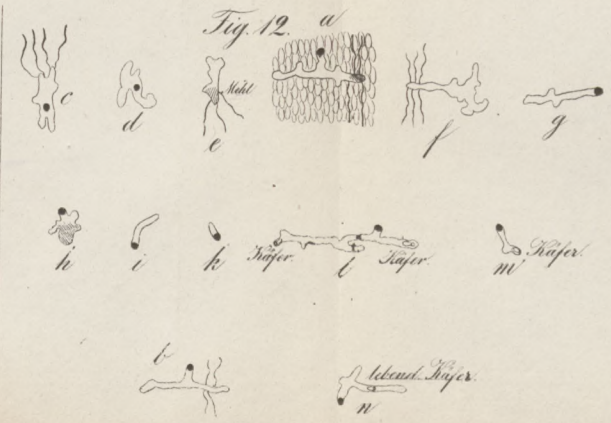 Fig. 12. a
c d e Mehl f g
h i k Käfer. l Käfer. m Käfer.
b n lebend. Käfer.